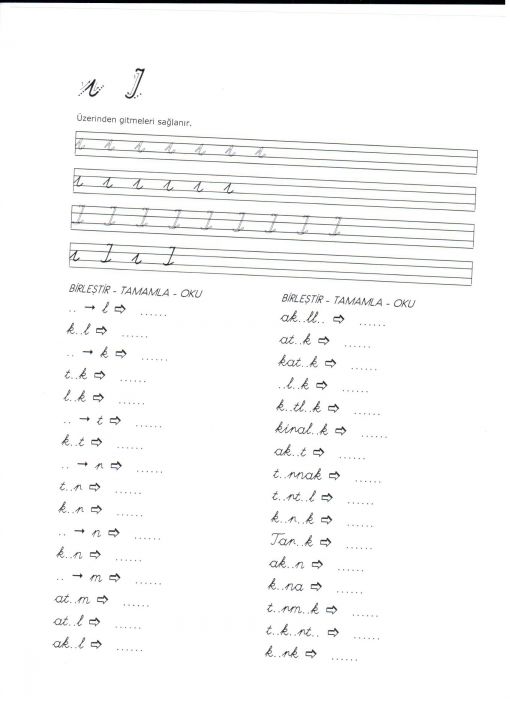 ı I
Üzerinden gitmeleri sağlanır.
ı ı ı ı ı ı ı
ı ı ı ı ı ı
I I I I I I I I I
ı I ı I
BİRLEŞTİR - TAMAMLA - OKU
.. → l ⇨ ......
k..l ⇨ ......
.. → k ⇨ ......
t..k ⇨ ......
l..k ⇨ ......
.. → t ⇨ ......
k..t ⇨ ......
.. → n ⇨ ......
t..n ⇨ ......
k..n ⇨ ......
.. → n ⇨ ......
k..n ⇨ ......
.. → m ⇨ ......
at..m ⇨ ......
at..l ⇨ ......
ak..l ⇨ ......
BİRLEŞTİR - TAMAMLA - OKU
ak..ll.. ⇨ ......
at..k ⇨ ......
kat..k ⇨ ......
..l..k ⇨ ......
k..tl..k ⇨ ......
kinal..k ⇨ ......
ak..t ⇨ ......
t..nnak ⇨ ......
t..nt..l ⇨ ......
k..n..k ⇨ ......
Tan..k ⇨ ......
ak..n ⇨ ......
k..na ⇨ ......
t..nm..k ⇨ ......
t..k..nt.. ⇨ ......
k..nk ⇨ ......